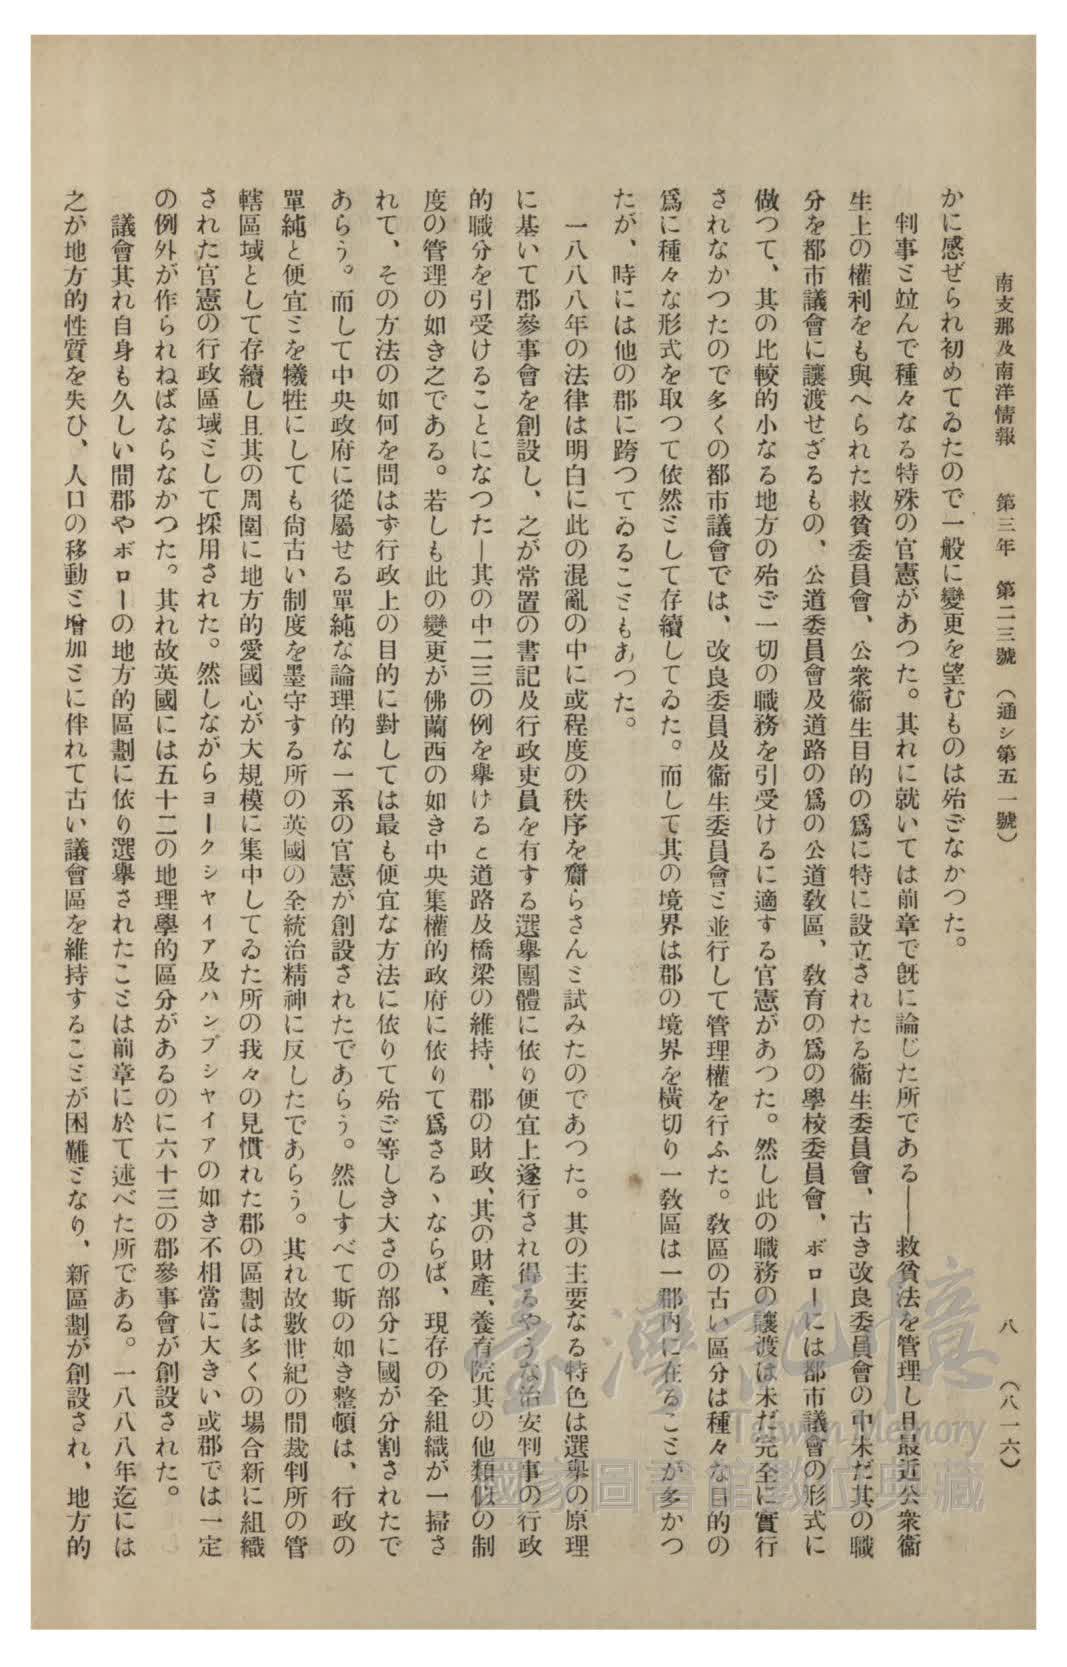 南支那及南洋情報　第三年　第二三號　（通シ第五一號）　八　（八一六）
かに感ぜられ初めてゐたので一般に變更を望むものは殆どなかつた。
判事と竝んで種々なる特殊の官憲があつた。其れに就いては前章で既に論じた所である——救貧法を管理し且最近公衆衞
生上の權利をも與へられた救貧委員會、公衆衞生目的の爲に特に設立されたる衞生委員會、古き改良委員會の中未だ其の職
分を都市議會に讓渡せざるもの、公道委員會及道路の爲の公道教區、教育の爲の學校委員會、ボローには都市議會の形式に
做つて、其の比較的小なる地方の殆ど一切の職務を引受けるに適する官憲があつた。然し此の職務の讓渡は未だ完全に實行
されなかつたので多くの都市議會では、改良委員及衞生委員會と並行して管理權を行ふた。教區の古い區分は種々な目的の
爲に種々な形式を取つて依然として存續してゐた。而して其の境界は郡の境界を橫切り一教區は一郡內に在ることが多かつ
たが、時には他の郡に跨つてゐることもあつた。
一八八八年の法律は明白に此の混亂の中に或程度の秩序を齎らさんと試みたのであつた。其の主要なる特色は選擧の原理
に基いて郡參事會を創設し、之が常置の書記及行政吏員を有する選擧團體に依り便宜上遂行され得るやうな治安判事の行政
的職分を引受けることになつた—其の中二三の例を擧けると道路及橋梁の維持、郡の財政、其の財產、養育院其の他類似の制
度の管理の如き之である。若しも此の變更が佛蘭西の如き中央集權的政府に依りて爲さるゝならば、現存の全組織が一掃さ
れて、その方法の如何を問はず行政上の目的に對しては最も便宜な方法に依りて殆ど等しき大さの部分に國が分割されたで
あらう。而して中央政府に從屬せる單純な論理的な一系の官憲が創設されたであらう。然しすべて斯の如き整頓は、行政の
單純と便宜とを犧牲にしても尙古い制度を墨守する所の英國の全統治精神に反したであらう。其れ故數世紀の間裁判所の管
轄區域として存續し且其の周圍に地方的愛國心が大規模に集中してゐた所の我々の見慣れた郡の區劃は多くの場合新に組織
された官憲の行政區域として採用された。然しながらヨークシヤイア及ハンプシヤイアの如き不相當に大きい或郡では一定
の例外が作られねばならなかつた。其れ故英國には五十二の地理學的區分があるのに六十三の郡參事會が創設された。
議會其れ自身も久しい間郡やボローの地方的區劃に依り選擧されたことは前章に於て述べた所である。一八八八年迄には
之が地方的性質を失ひ、人口の移動と增加とに伴れて古い議會區を維持することが困難となり、新區劃が創設され、地方的
臺灣記憶
Taiwan Memory
國家圖書館數位典藏